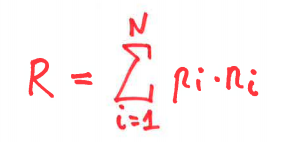 R = \sum_{i=1}^{N} p_i \cdot n_i